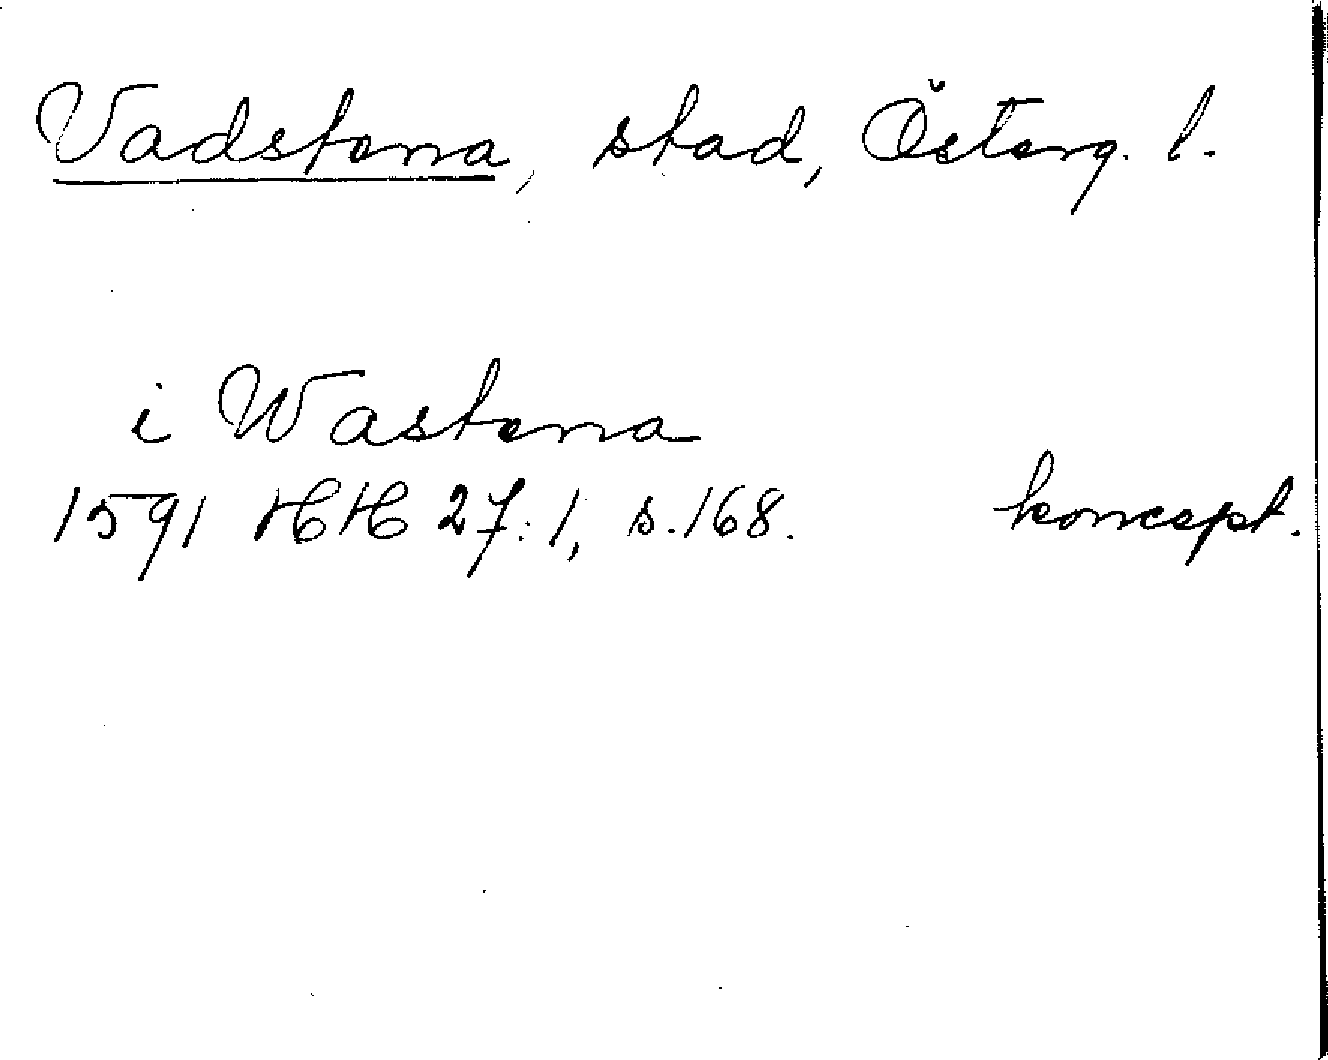 Vadstena, stad, Österg. l.
i Wastena
1591 HH 27:1, s.168. koncept.